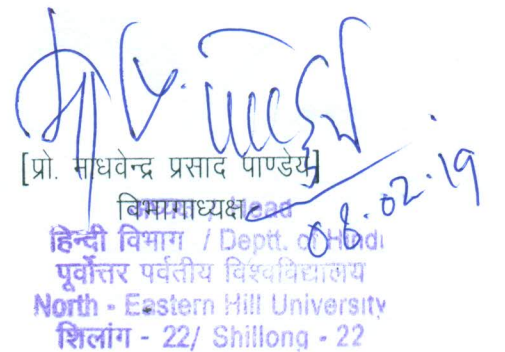 मा प्र. पाण्डेय
[प्रो. माधवेन्द्र प्रसाद पाण्डेय]
विभागाध्यक्ष Head
08.02.19
हिन्दी विभाग / Deptt. of Hindi
पूर्वोत्तर पर्वतीय विश्वविद्यालय
North - Eastern Hill University
शिलांग - 22/ Shillong - 22